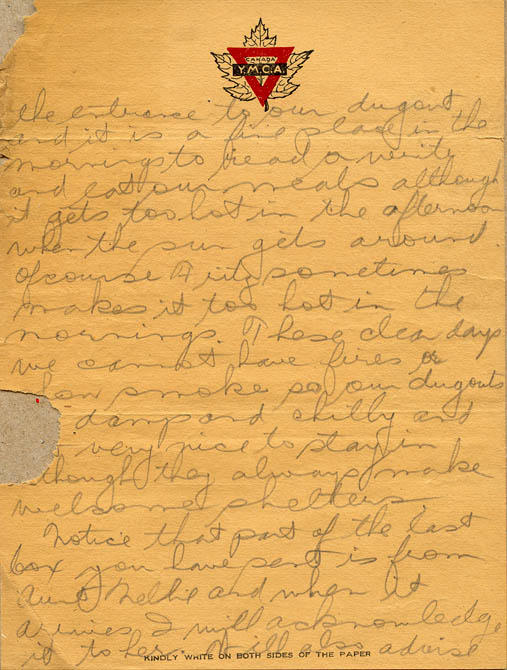 CANADA
Y.M.C.A.
the entrance to our dugout
and it is a fine place in the
mornings to read or write
and eat our meals although
it gets too hot in the afternoon
when the sun gets around.
Of course Fritz sometimes
makes it too hot in the
mornings. These clear days
we cannot have fires or
how smoke so our dugouts
damp and chilly and
very nice to stay in
though they always make
welcome shelters.
Notice that part of the last
box you have sent is from
Aunt Nellie and when it
arrives I will acknowledge
it to her. Will also advise
KINDLY WRITE ON BOTH SIDES OF THE PAPER